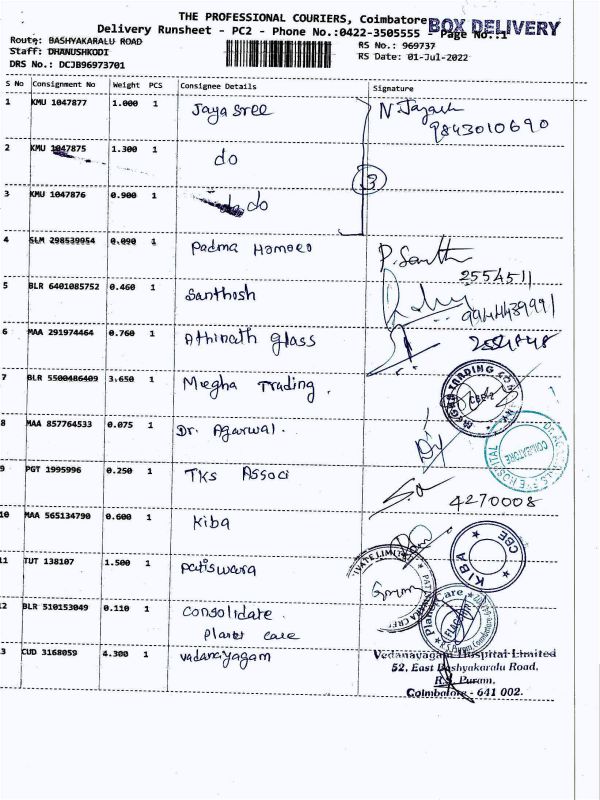 THE PROFESSIONAL COURIERS, Coimbatore
BOX DELIVERY
Delivery Runsheet - PC2 - Phone No.:0422-3505555 - Page No.:1
Route: BASHYAKARALU ROAD
RS No.: 969737
Staff: DHANUSHKODI
RS Date: 01-Jul-2022
DRS No.: DCJB96973701
S No Consignment No Weight PCS Consignee Details Signature
1 KMU 1047877 1.000 1 Jayasree
9843010690
2 KMU 1047875 1.300 1 do
3
3 KMU 1047876 0.900 1 do
4 SLM 298539954 0.090 1 Padma Homoeo
2554511
5 BLR 6401085752 0.460 1 Santhosh
6 MAA 291974464 0.760 1 Athinath glass
7 BLR 5500486409 3.650 1 Megha Trading.
MEGHA TRADING
CBE-2
8 MAA 857764533 0.075 1 Dr. Agarwal.
EYE HOSPITAL
COIMBATORE
9 PGT 1995996 0.250 1 TKS Associ
4270008
10 MAA 565134790 0.600 1 Kiba
KIBA
CBE
11 TUT 138107 1.500 1 patiswara
12 BLR 510153049 0.110 1 Consolidate.
Planet care
Planet Care
3 CUD 3168059 4.300 1 vadanayagam
Vedanayagam Hospital Limited
52, East Bashyakaralu Road,
R.S. Puram,
Coimbatore - 641 002.